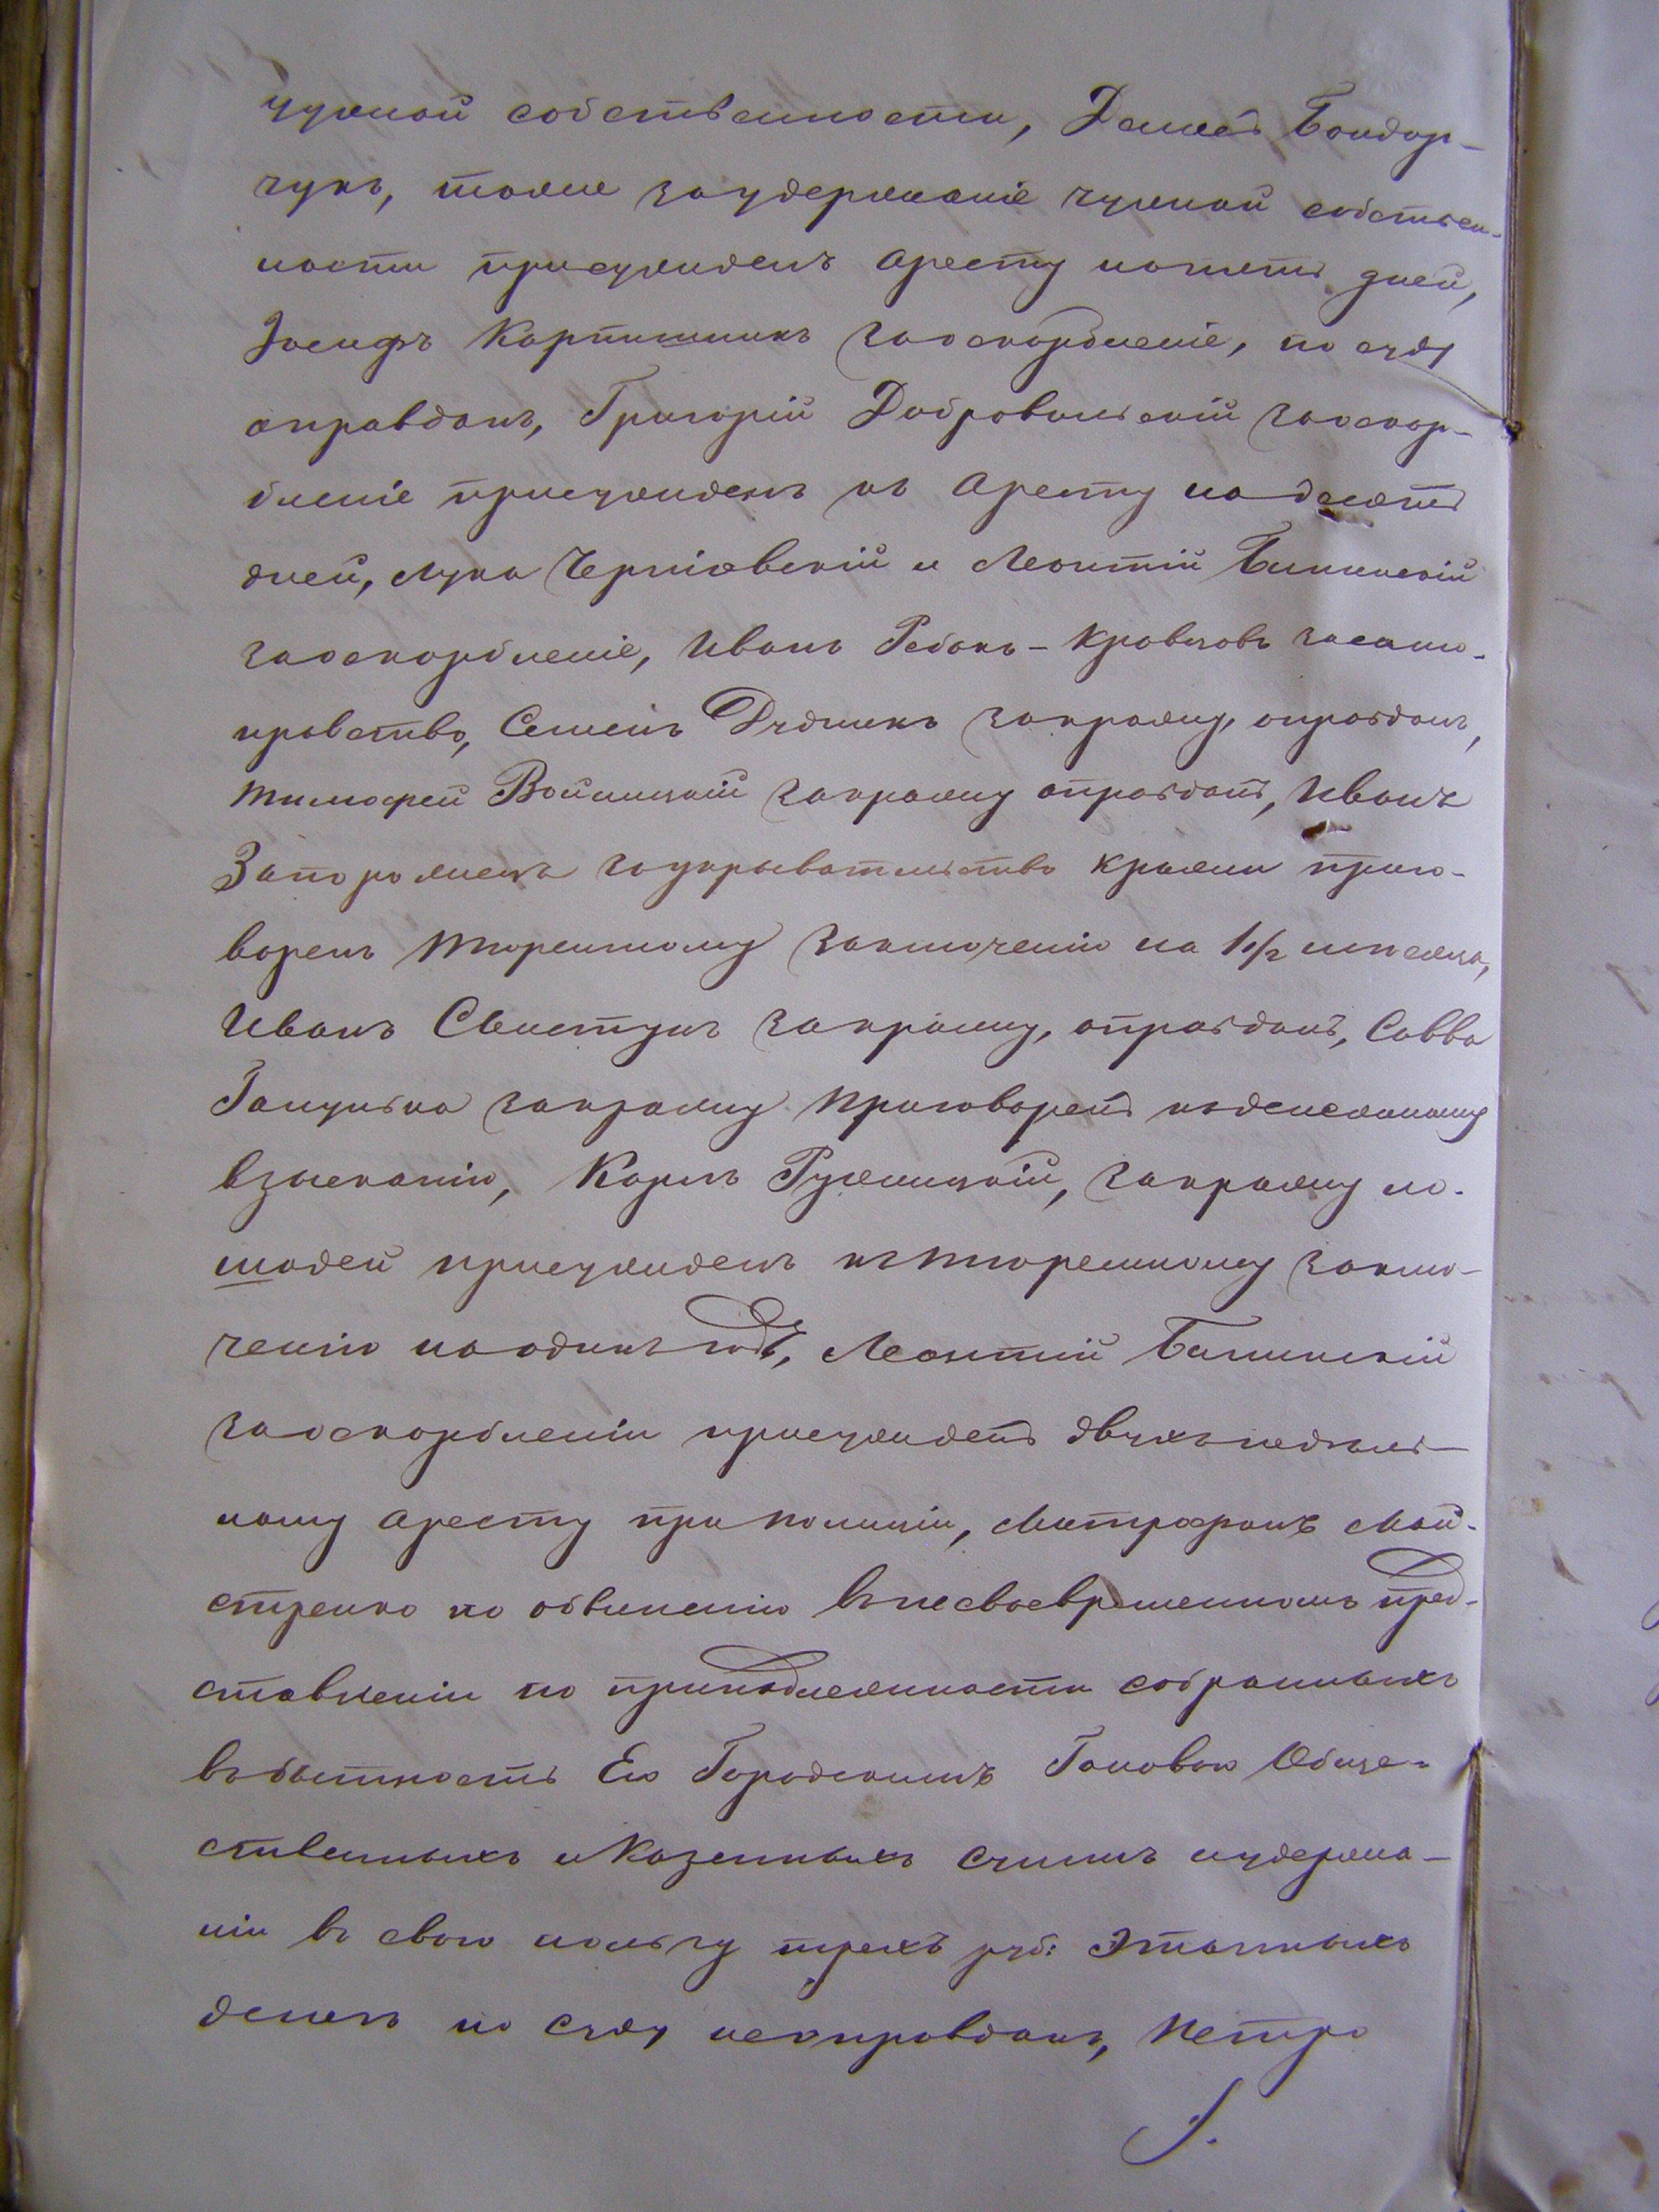 чужой собственности, Бондар-
чукъ, тоже за удержаніе чужой собствен-
ности присужденъ аресту на пять дней,
Іосифъ Карпишинъ за оскорбленіе, по суду
оправданъ, Григорій Добровольскій за оскор-
бленіе присужденъ къ аресту на десять
дней, Лука Черніавскій и Леонтій Билинскій
за оскорбленіе, Иванъ Рабокъ-Кравцовъ за само-
правство, Семенъ Дудникъ за кражу, оправданъ,
Тимофей Войницкій за кражу оправданъ, Иванъ
Запорожецъ за укрывательство кражи приго-
воренъ тюремному заключенію на 1 1/2 месяца,
Иванъ Свистунъ за кражу, оправданъ, Савва
Ганулька за кражу приговоренъ къ денежному
взысканію, Карлъ Ружицкій, за кражу ло-
шадей присужденъ къ тюремному заклю-
ченію на одинъ годъ, Леонтій Билинскій
за оскорбленіи присужденъ двухънедѣль-
ному аресту при полиціи, Митрофанъ Май-
стренко по обвиненію въ несвоевременномъ пред-
ставленіи по принадлежности собранныхъ
въ бытность Его Городскимъ Головою Обще-
ственныхъ и Казенныхъ сумъ и удержа-
ніи въ свою пользу трехъ руб: этапныхъ
денегъ по суду неоправданъ, Петро